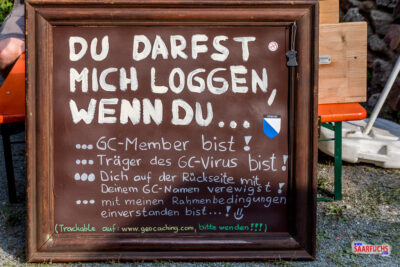 DU DARFST
MICH LOGGEN,
WENN DU...
...GC-Member bist!
...Träger des GC-Virus bist!
...Dich auf der Rückseite mit
Deinem GC-Namen verewigst!
...mit meinen Rahmenbedingungen
einverstanden bist...!
(Trackable auf: www.geocaching.com, bitte wenden!!!)
SAARFUCHS